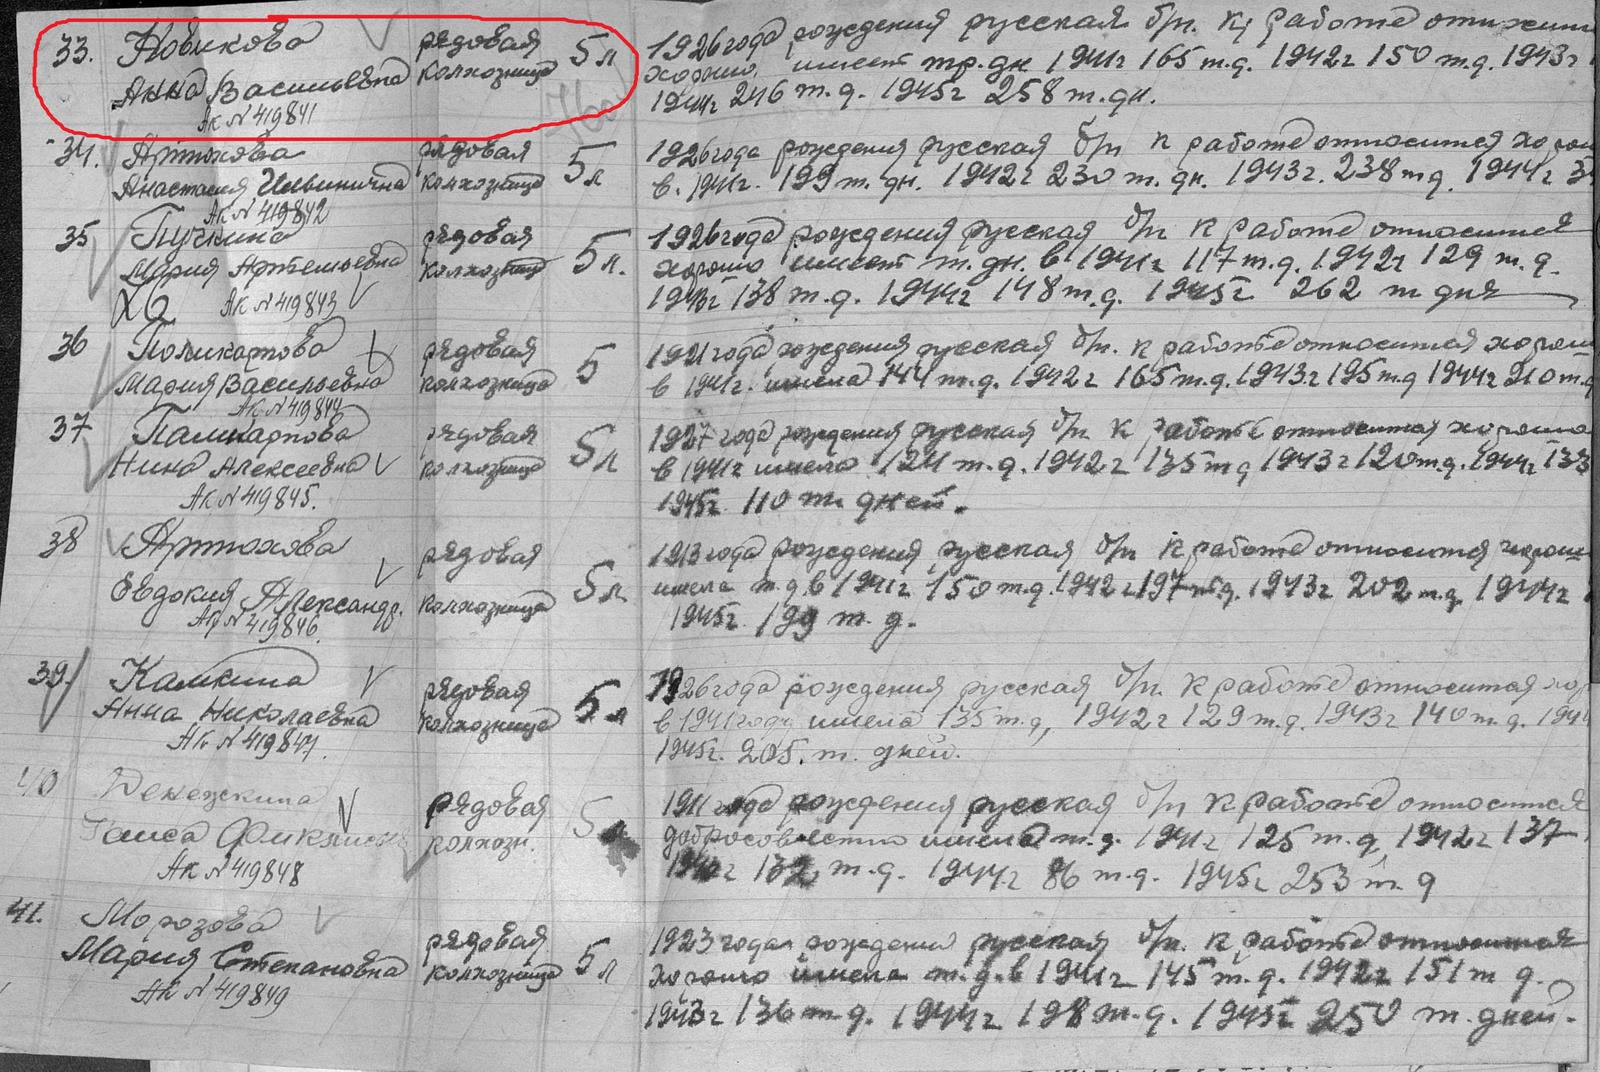 33. Новикова рядовая 5 л 1926 года рождения русская б/п. к работе относит
Анна Васильевна колхозница хорошо, имеет тр. дн 1941г 165 т.д. 1942г 150 т.д. 1943г
Ак N 419841 1944г 246 т.д. 1945г 258 т.дн.
34. Артюхова рядовая 5 л 1926 года рождения русская б/п к работе относится хорош
Анастасия Ильинична колхозница в. 1941г. 199 т. дн. 1942г 230 т. дн. 1943г. 238 т д. 1944г
Ак N 419842
35 Пучкина рядовая 5 л. 1926 года рождения русская б/п к работе относится
Мария Артемьевна колхозница хорошо имеет т. дн. в 1941г 117 т.д. 1942г 129 т.д.
Ак N 419843 1943г 138 т.д. 1944г 148 т.д. 1945г 262 т дня
36 Поликарпова рядовая 5 1921 года рождения русская б/п. к работе относится хорош
Мария Васильевна колхозница в 1941г. имела 144 т.д. 1942г 165 т.д. 1943г 195 т.д 1944г 210 т.д
Ак N 419844
37 Паликарпова рядовая 5 л 1927 года рождения русская б/п. к работе относится хорошо
Нина Алексеевна колхозница в 1941г имела 124 т.д. 1942г 135 т д 1943г 120 т.д. 1944г 133
Ак N 419845. 1945г. 110 т. дней.
38 Артюхова рядовая 5 л 1913 года рождения русская б/п к работе относится хорош
Евдокия Александр. колхозница имела т.д в 1941г 150 т.д. 1942г 197 т.д. 1943г 202 т.д 1944г
Ак N 419846. 1945г. 199 т. д.
39. Камкина рядовая 5 л 1926 года рождения русская б/п. к работе относится хор
Анна Николаевна колхозница в 1941 году имела 135 т.д, 1942г 129 т.д. 1943г 140 т.д. 194
Ак N 419847. 1945г. 205. т. дней.
40 Денежкина рядовая 5 1911 года рождения русская б/п к работе относится
колхозн. добросовестно имела т.д. 1941г 125 т.д. 1942г 137
Ак N 419848 132 т.д. 1944г 86 т.д. 1945г 253 т.д
41. Морозова рядовая 5 л 1923 года рождения русская б/п. к работе относится
Мария Степановна колхозница хорошо имела т.д. в 1941г 145 т.д. 1942г 151 т д.
Ак N 419849 1943г 136 т.д. 1944г 198 т.д. 1945г 250 т. дней.